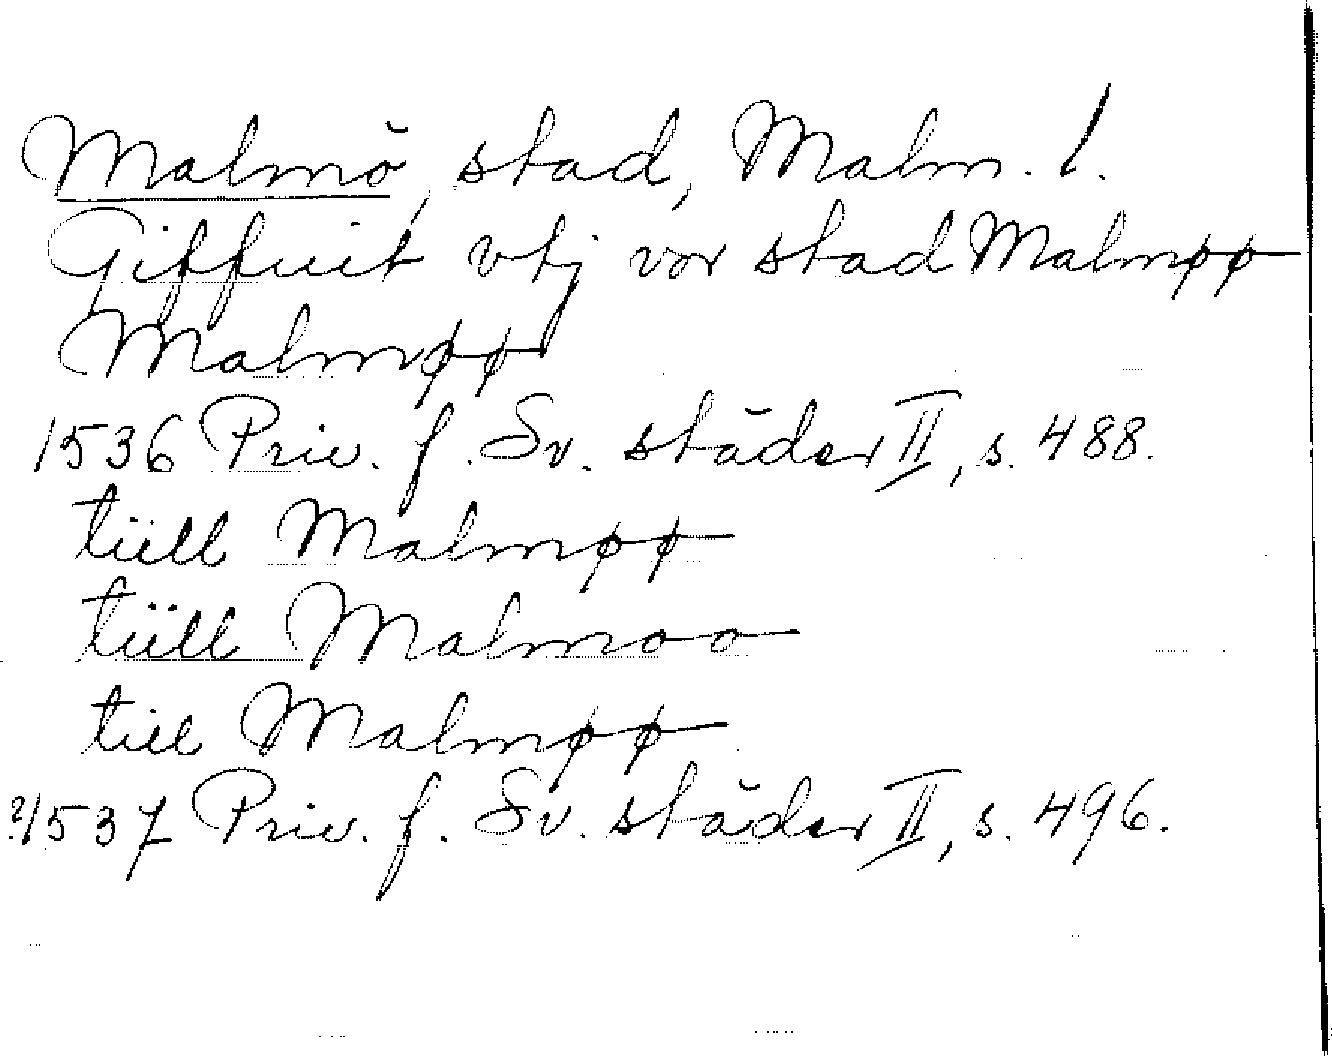 Malmö, stad, Malm. l.
Giffuit vtj vor stad Malmøø
Malmøø
1536 Priv. f. Sv. städer II, s. 488.
tiill Malmøø
tiill Malmoo
till Malmøø
?1537 Priv. f. Sv. städer II, s. 496.